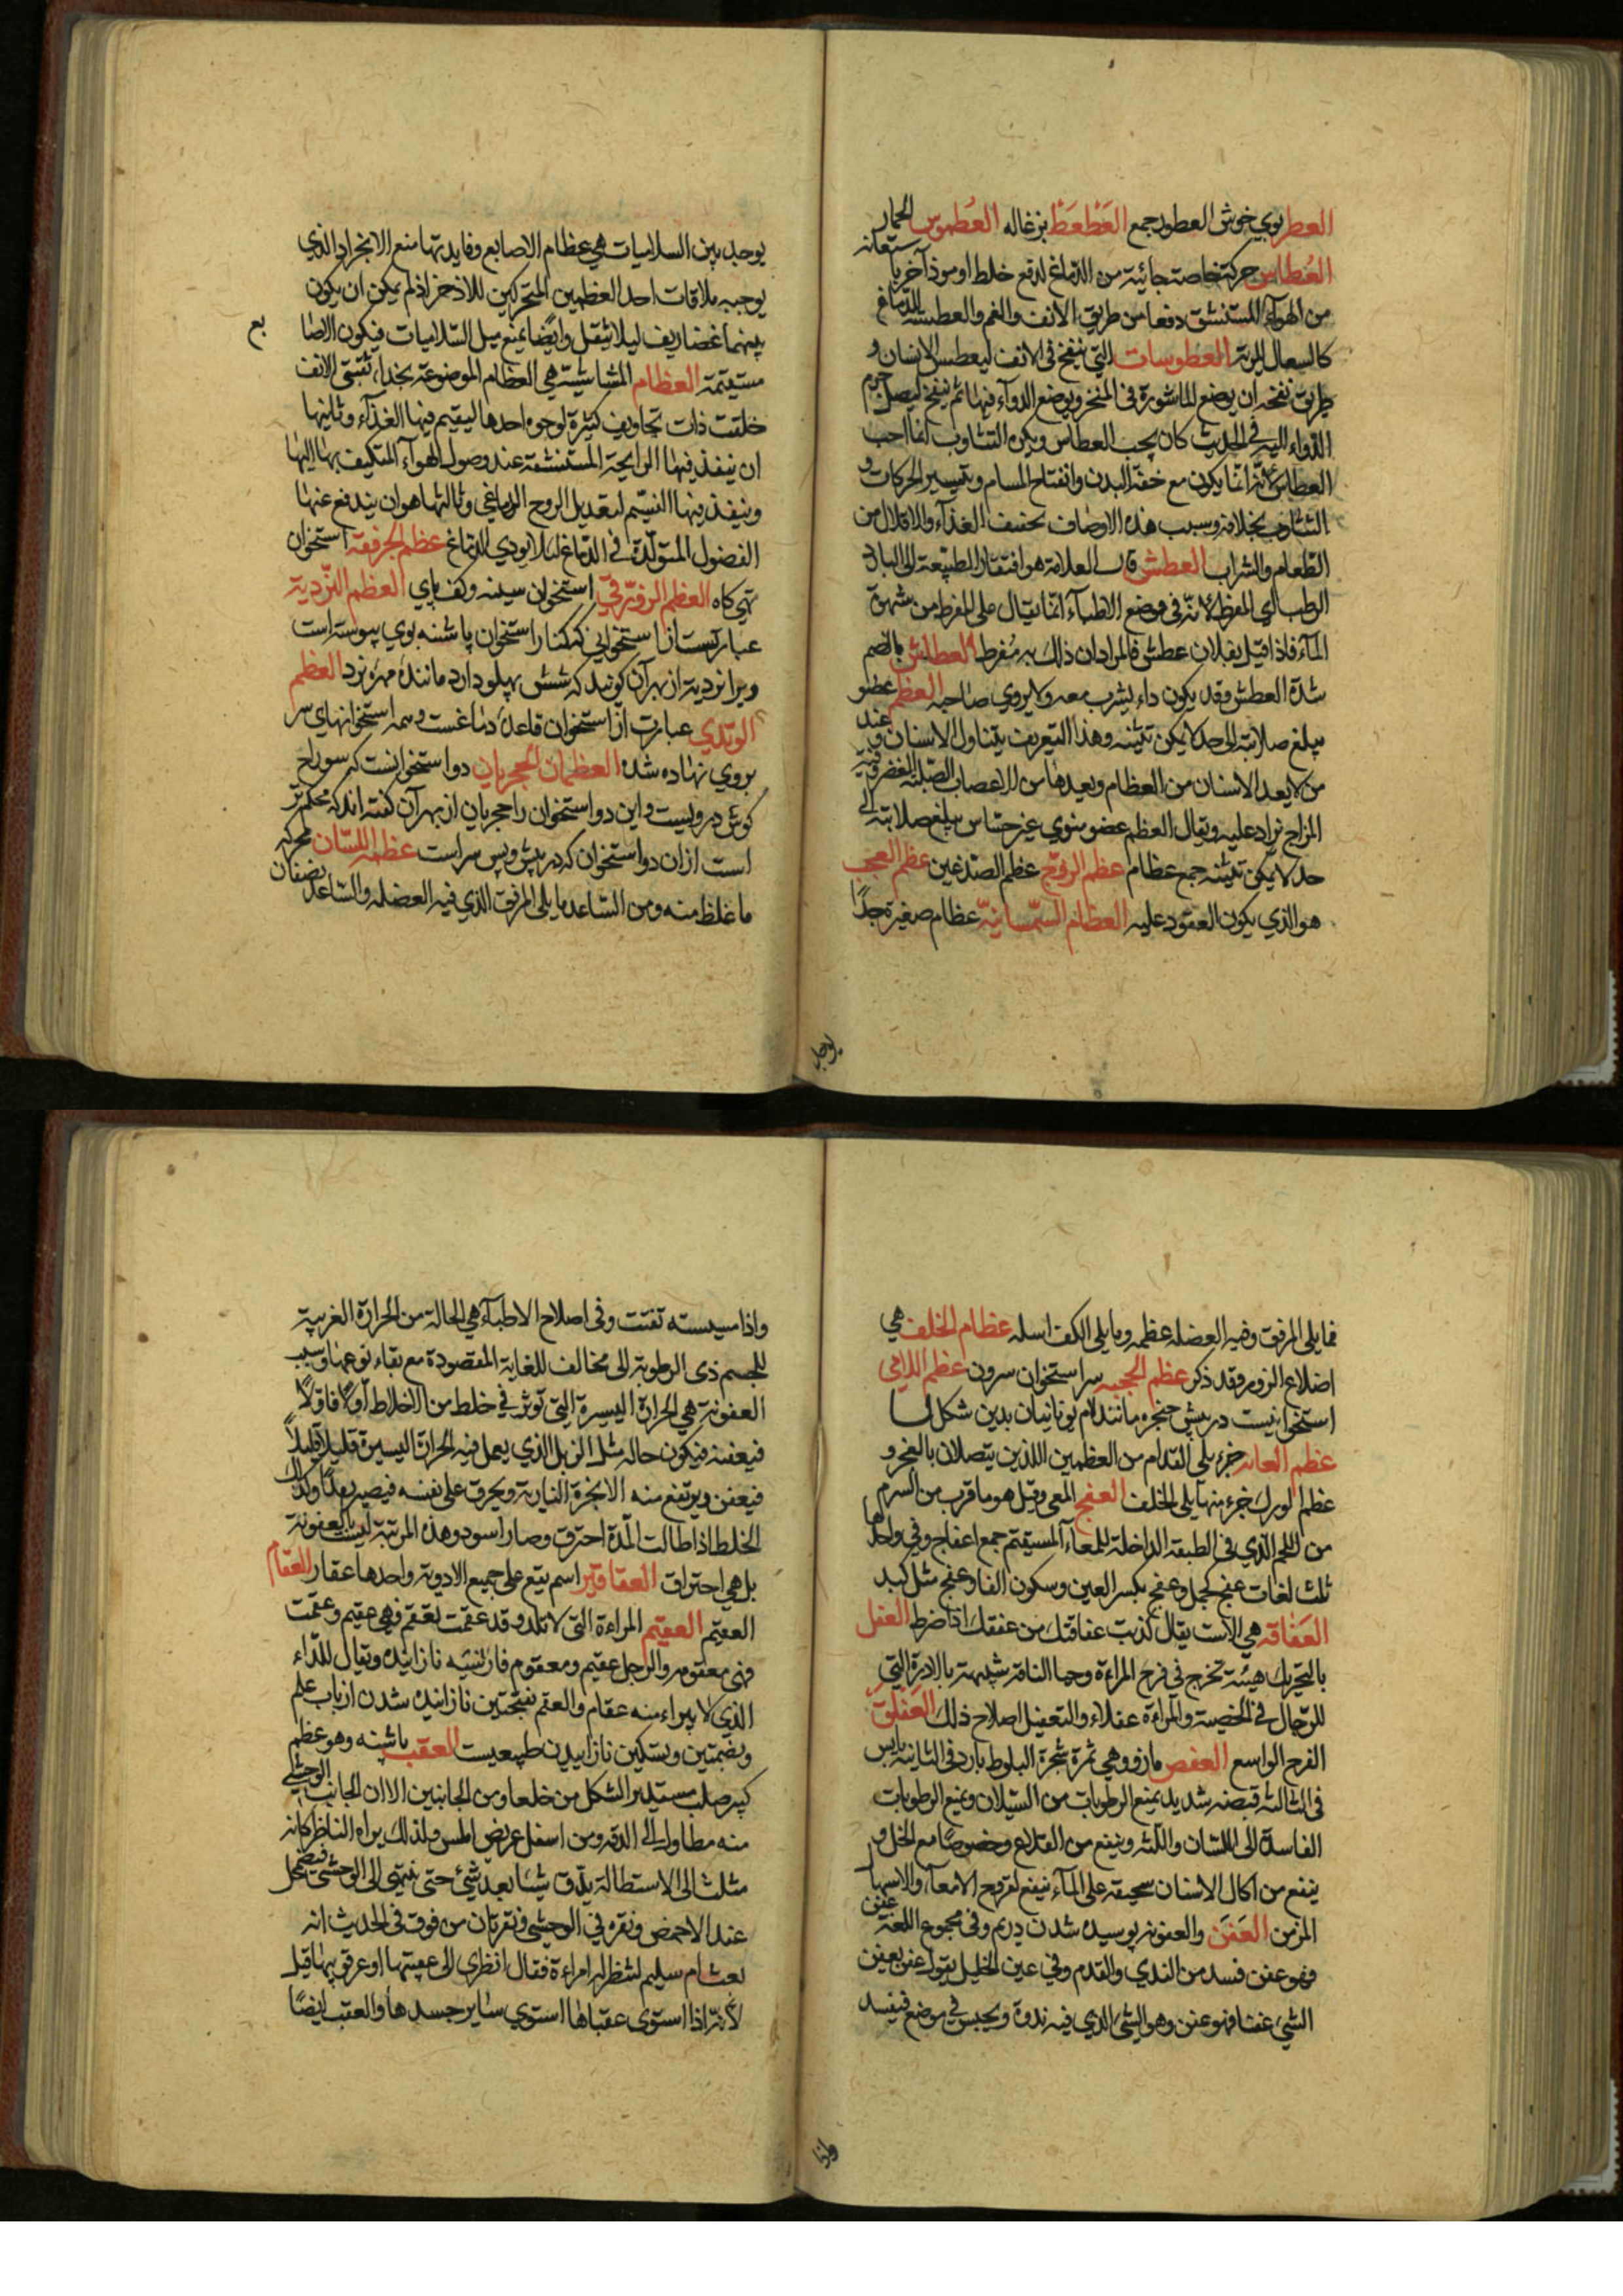 العطر بوي خوش العطور جمع العَطْعَطْ بزغاله العُطموس الحمار
العُطاس حركة خاصة جائية من الدماغ لدفع خلط او موذ آخر باستعانة
من الهوآء المستنشق دفعا من طريق الانف والفم والعطسة للدماغ
كالسعال للرية العطوسات التي ينفخ في الانف ليعطس الانسان و
طريق نفخه ان يوضع الماشورة في المنخر ويوضع الدوآء فيها ثم ينفخ ليصل جرم
الدواء اليه في الحديث كان يحب العطاس ويكره التثاوب انما احب
العطاس لانه انما يكون مع خفة البدن وانفتاح المسام وتيسير الحركات و
التثاوب بخلافه وسبب هذه الاوصاف تخفيف الغذآء والاقلال من
الطعام والشراب العطش قال العلامة هو افتقار الطبيعة الى البارد
الرطب اي المفرط لانه في موضع الاطبآء انما يقال على المفرط من شهوة
المآء فاذا قيل بفلان عطش فالمراد ان ذلك به مُفرط العطاش بالضم
شدة العطش وقد يكون داء يشرب معه ولا يروي صاحبه العظم عضو
يبلغ صلابته الى حد لا يمكن تثنيه وهذا التعريف يتناول الاسنان و عند
من لا يعد الاسنان من العظام ويعدها من الاعصاب الصلبة الغضروفية
المزاج يزاد عليه ويقال العظم عضو منوي غير حساس يبلغ صلابته الى
حد لا يمكن تثنيه جمع عظام عظم الزوج عظم الصدغين عظم العجب
هو الذي يكون القعود عليه العظام السمسانية عظام صغيرة جدًا
يوجد
يوجد بين السلاميات هي عظام الاصابع وفايدتها منع الانجراد الذي
يوجبه ملاقات احد العظمين المتحركين للاخر اذ لم يمكن ان يكون
بينهما غضاريف ليلا يثقل وايضًا يمنع ميل السلاميات فيكون الاصا بع
مستقيمة العظام المشاشية هي العظام الموضوعة بحذاء ثقبتي الانف
خلقت ذات تجاويف كثيرة لوجوه احدها ليقيم فيها الغذآء وثانيها
ان ينفذ فيها الرايحة المستنشقة عند وصول الهوآء المتكيف بها اليها
وينفذ فيها النسيم لتعديل الروح الدماغي وثالثها هو ان يندفع عنها
الفضول المتولدة في الدماغ لئلا يوذي الدماغ عظم الحرقفة استخوان
تهي كاه العظم الزورقي استخوان سينه وكف پاي العظم النّردية
عبارتست از استخواني كه كنار استخوان پاشنه بوي پيوسته است
ويرا نردية از بهر آن كويند كه شش پهلو دارد مانندهٔ مهرهٔ نرد العظم
الوتدي عبارت از استخوان قاعدهٔ دماغست و همه استخوانهاي سر
بروي نهاده شده العظمان الحجريان دو استخوانست كه سوراخ
كوش درويست و اين دو استخوان را حجريان از بهر آن كفته اند كه محكم تر
است از ان دو استخوان كه در پيش و پس سر است عظمة اللسان محركة
ما غلظ منه ومن الساعد ما يلي المرفق الذي فيه العضلة والساعد نصفان
فما يلي المرفق وفيه العضلة عظمة وما يلي الكف اسلة عظام الخلف هي
اضلاع الزور وقد ذكر عظم الحجبه سر استخوان سرون عظم اللامي
استخوانيست در پيش حنجره مانند لام يونانيان بدين شكل
عظم العانه جزء يلي القدام من العظمين اللذين يتصلان بالعجز و
عظم الورك جزء منها يلي الخلف العفج المعى وقيل هو ما قرب من السرم
من اللحم الذي في الطبقة الداخلة للمعآء المستقيم جمع اعفاج وفي واحدها
ثلث لغات عفج كجبل وعفج بكسر العين وسكون الفا وعفج مثل كبد
العَفّاقه هي الاست يقال كذبت عفاقتك من عفقك اذا ضرط العفل
بالتحريك هيئة تخرج في فرج المراءة وحيا الناقة شبيهة بالادرة التي
للرجال في الخصية والمراءة عفلاء والتعفيل اصلاح ذلك العَفَلَّق
الفرج الواسع العفص مازو وهي ثمرة شجرة البلوط بارد في الثانية يابس
في الثالثة قبضه شديد يمنع الرطوبات من السيلان ويمنع الرطوبات
الفاسدة الى اللسان واللثة وينفع من القلاع وخصوصًا مع الخل و
ينفع من اكال الاسنان سحيقه على المآء ينفع لقروح الامعآء والاسهال
المزمن العَفَن والعفونة پوسيده شدن درم وفي مجموع اللغة عفن
فهو عفن فسد من الندي والقدم وفي عين الخليل يقول عفن يعفن
الشي عفنا فهو عفن وهو الشي الذي فيه ندوة ويحبس في موضع فيفسد
واذا
واذا مسسته تفتت وفي اصلاح الاطبآء هي الحالة من الحرارة الغريبة
للجسم ذي الرطوبة الى مخالف للغاية المقصودة مع بقاء نوعها وسبب
العفونة هي الحرارة اليسيرة التي توثر في خلط من الاخلاط اولا فاولًا
فيعفنه فيكون حاله مثل الزبل الذي يعمل فيه الحرارة اليسيرة قليلا قليلاً
فيعفن ويرتفع منه الابخرة النارية ويحرق على نفسه فيصير رمادا وكذلك
الخلط اذا طالت المدة احترق وصار اسود وهذه المرتبة ليست بالعفونة
بل هي احتراق العقاقير اسم يقع على جميع الادوية واحدها عقار العقام
العقيم العقيم المراءة التي لا تلد وقد عقمت تعقم فهي عقيم وعقمت
فهي معقومه والرجل عقيم ومعقوم فارسيه نازاينده ويقال للداء
الذي لا يبراء منه عقام والعقم بفتحتين نازاينده شدن از باب علم
وبضمتين وبسكين نازاييدن طبيعيست العقب پاشنه وهو عظم
كبير صلب مستدير الشكل من خلفها ومن الجانبين الا ان الجانب الوحشي
منه مطاول الى الدقة ومن اسفل عريض املس ولذلك يراه الناظر كانه
مثلث الى الاستطالة يدق شيئا بعد شئ حتى ينتهي الى الوحشي فيضمحل
عند الاخمص ونقره في الوحشي ونقرتان من فوق في الحديث انه
بعث ام سليم لتنظر له امراءة فقال انظري الى عقبيها او عرقوبيها قيل
لانه اذا استوى عقباها استوي ساير جسدها والعقب ايضًا